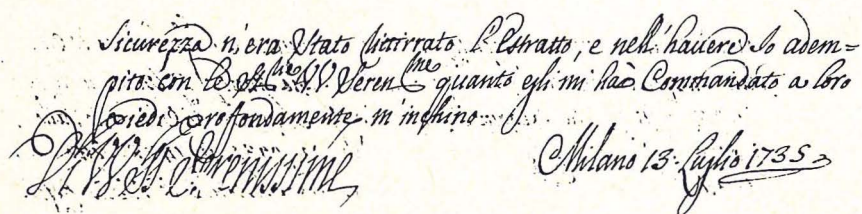 Sicurezza n'era Stato littirrato l'Estratto, e nell'havere Io adem=
pito con le VV. Seren.me quanto egli mi hà Commandato a loro
piedi profondamente m'inchino
VV. Serenissime
Milano 13. Luglio 1735